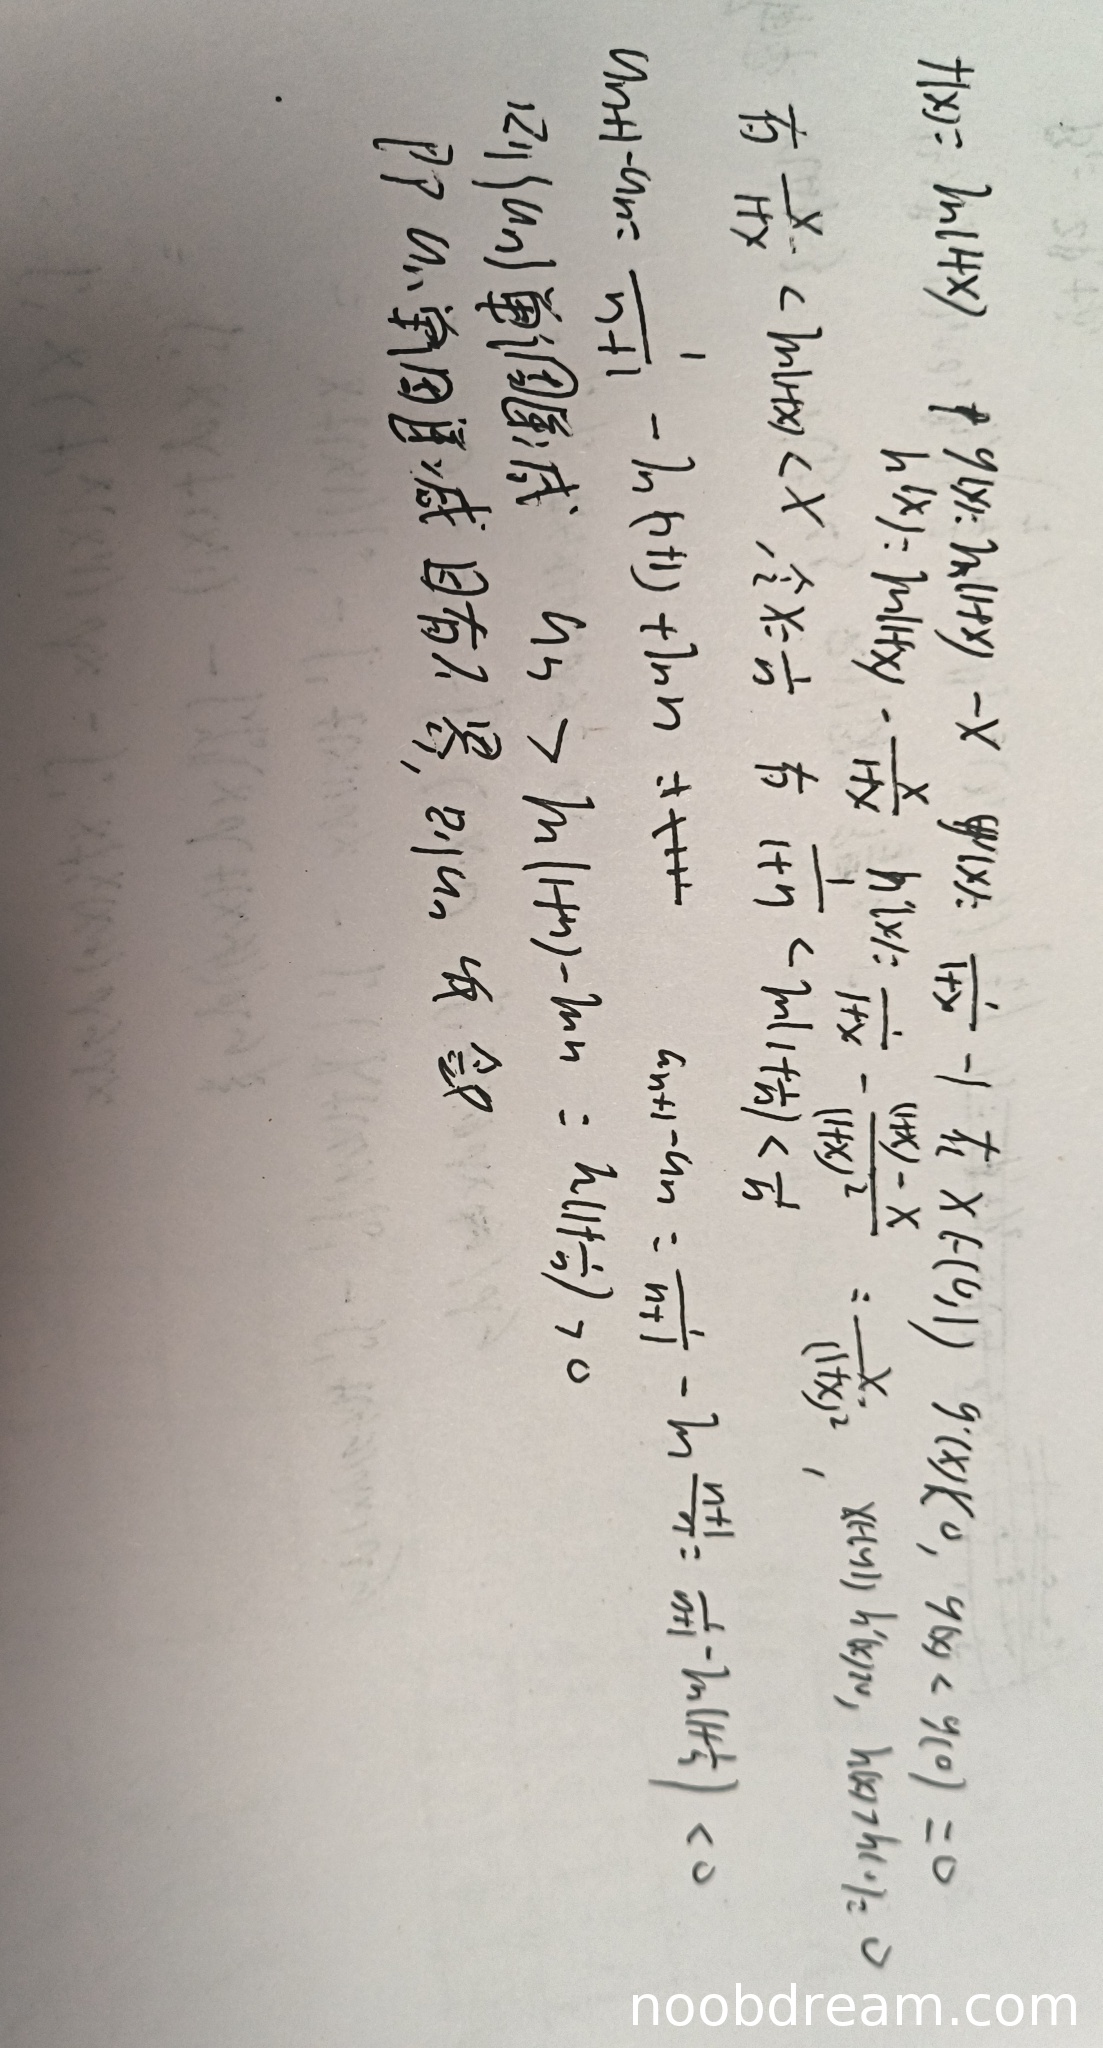 f(x)= ln(1+x) g(x)=ln(1+x) - x g'(x)= 1/(1+x) - 1 在 x∈(0,1) g'(x)<0, g(x) < g(0) = 0
h(x)= ln(1+x) - x/(1+x) h'(x)= 1/(1+x) - ((1+x) - x)/(1+x)² = x/(1+x)², x∈(0,1) h'(x)>0, h(x)>h(0)= 0
有 x/(1+x) < ln(1+x) < x, 令x=1/n 有 1/(n+1) < ln(1+1/n) < 1/n
un+1-un= 1/(n+1) - ln(n+1) + ln n = un+1-un = 1/(n+1) - ln (n+1)/n = 1/(n+1) - ln(1+1/n) < 0
则{un}单调递减 un > ln(1+n)-ln n = ln(1+1/n) > 0
即 un 单调递减 且有下界, 则un 收敛
noobdream.com